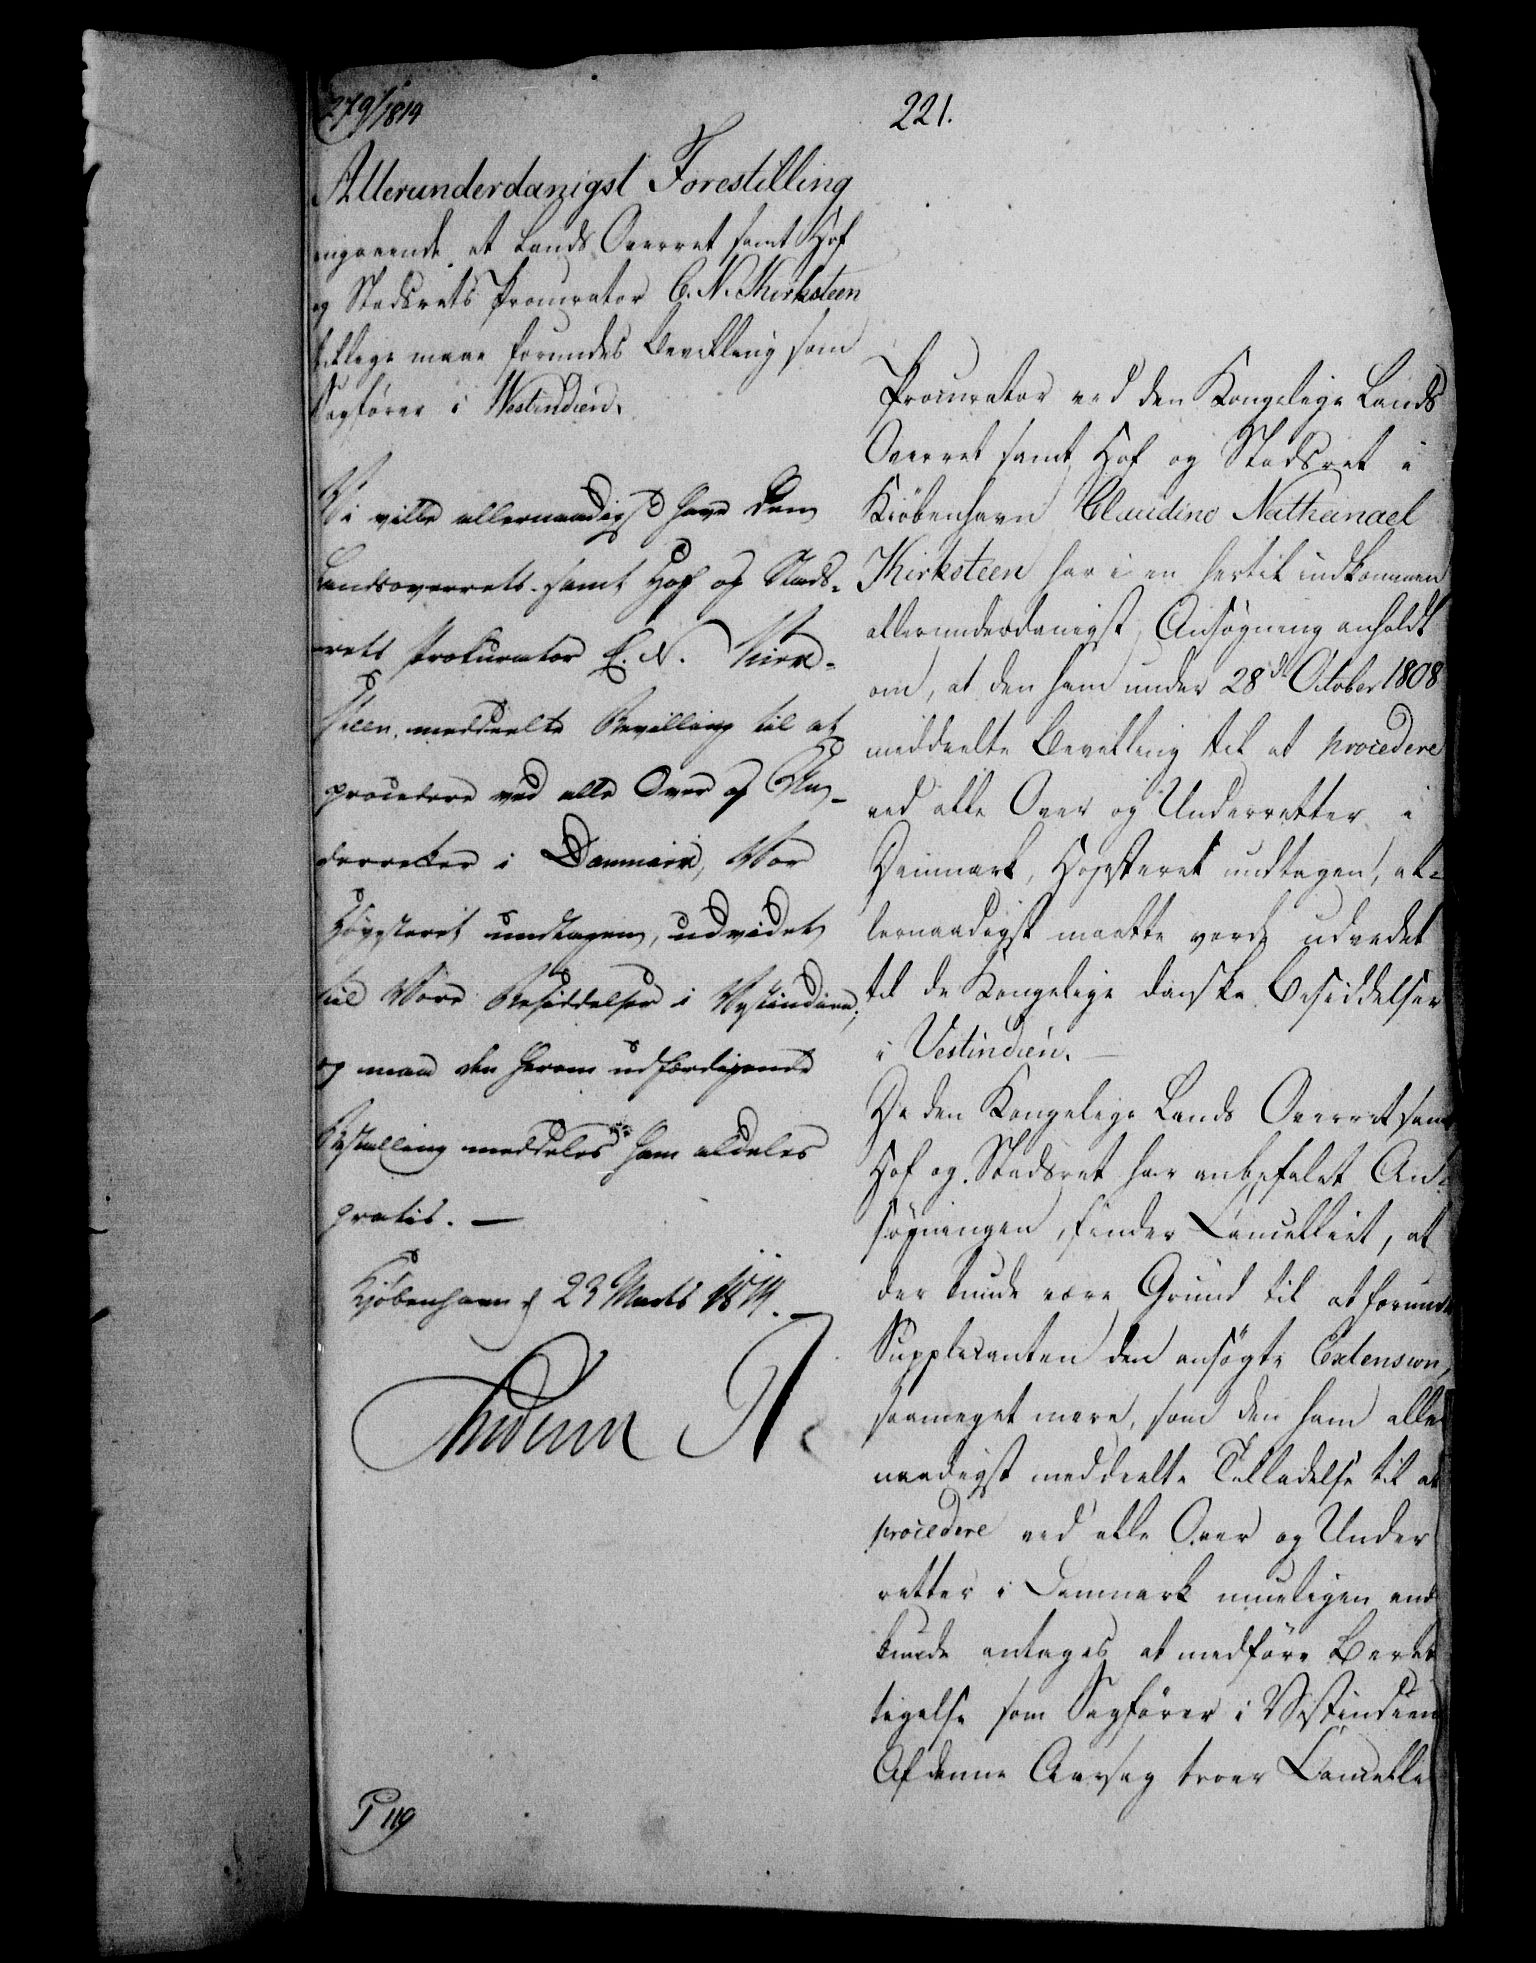 279/1814
221.
Allerunderdanigst Forestilling
angaaende, at Lands Overret samt Hof
og Stadsrets Procurator C. N. Kirksteen
tillige maae forundes Bevilling som
Sagfører i Westindien.
Vi ville allernaadigst have den
Landsoverrets- samt Hof og Stads-
rets Prokurator C. N. Kirk-
steen meddeelte Bevilling til at
procedere ved alle Over og Un-
derretter i Danmark, Vor
Höyesteret undtagen, udvidet
til Vore Besiddelser i Vestindien;
og maa den herom udfærdigende
Bestalling meddeles ham aldeles
gratis. —
Kjöbenhavn d 23 Marts 1814.
Frederik R
P 119
Procurator ved den Kongelige Lands
Overret samt Hof og Stadsret i
Kiöbenhavn Claudius Nathanael
Kirksteen har i en hertil indkommen
allerunderdanigst Ansögning anholdt
om, at den ham under 28de October 1808
meddeelte Bevilling til at procedere
ved alle Over og Underretter i
Danmark, Höyesteret undtagen, al-
lernaadigst maatte vorde udvidet
til de Kongelige danske Besiddelser
i Vestindien. —
Da den Kongelige Lands Overret samt
Hof og Stadsret har anbefalet An-
søgningen, finder Cancelliet, at
der kunde være Grund til at forunde
Supplicanten den ansøgte Extension,
saameget mere, som den ham aller
naadigst meddeelte Tilladelse til at
procedere ved alle Over og Under
retter i Danmark mueligen end
kunde antages at medføre Beret
tigelse som Sagfører i Vestindien
Af denne Aarsag troer Cancellie